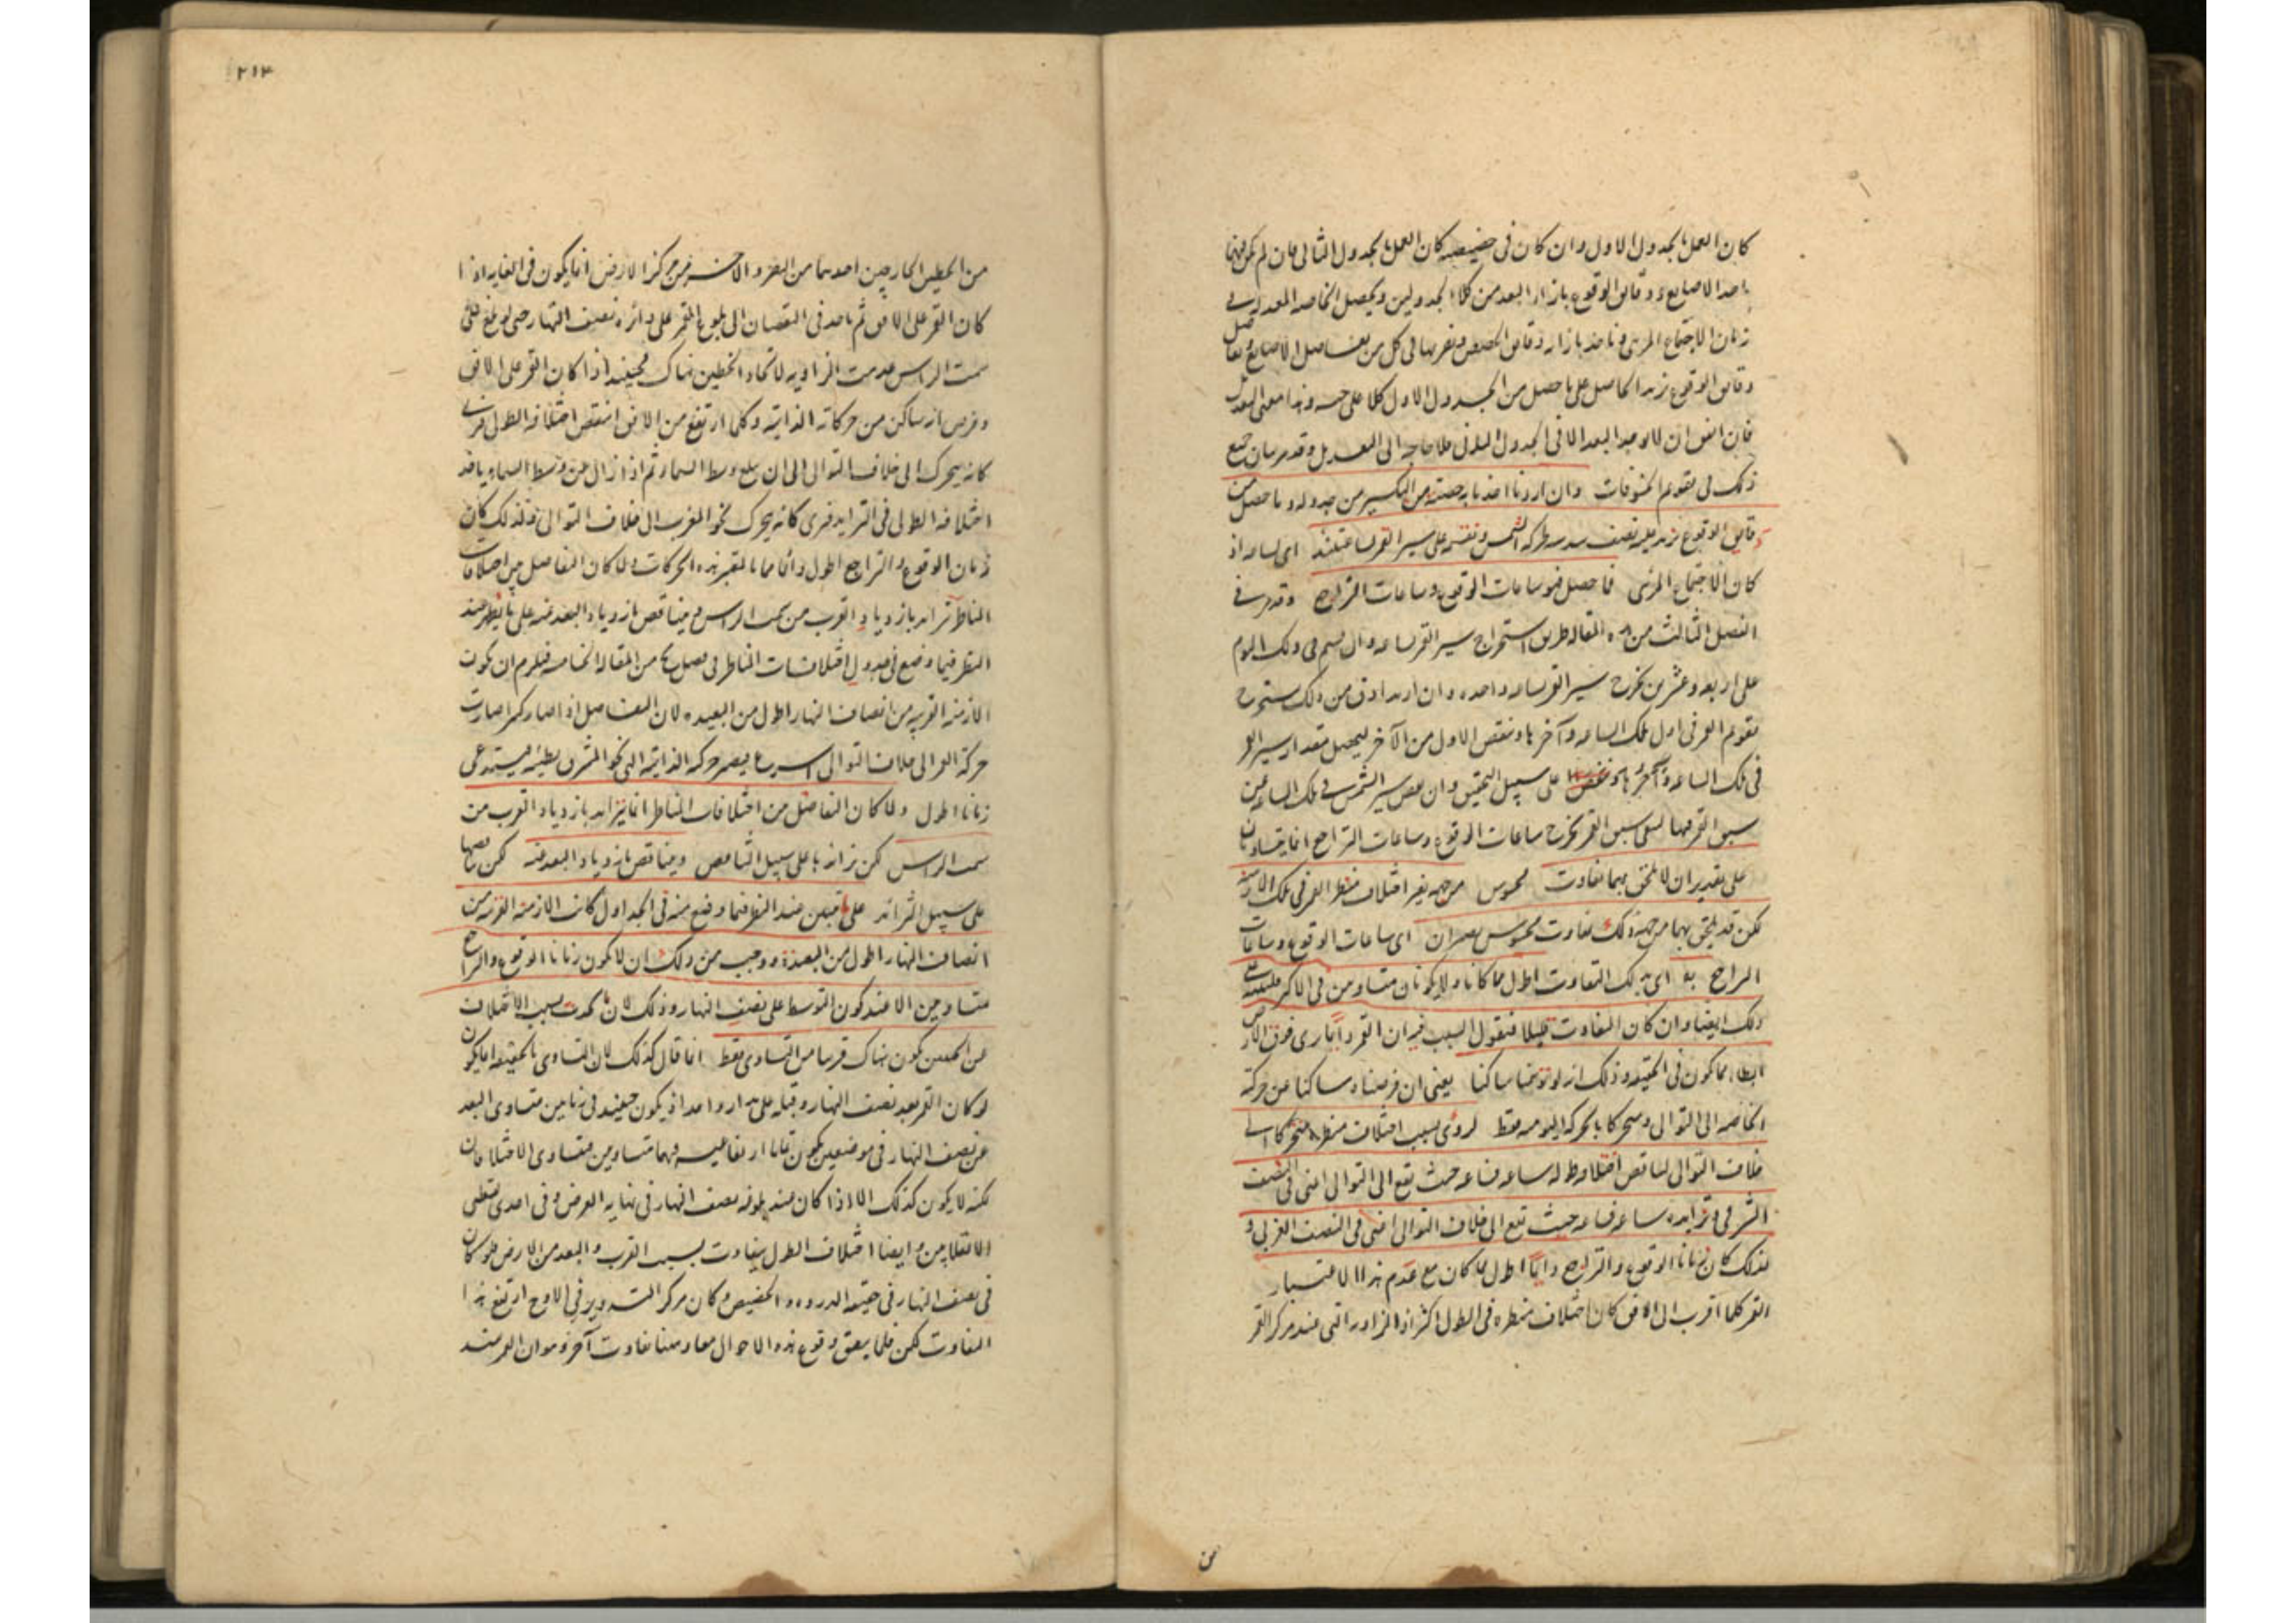 كان العمل بالجدول الاول وان كان فى حضيضه كان العمل بالجدول الثانى فان لم يكن فيهما
ياخذ الاصابع ودقايق الوقوع بازاء البعد من كلا الجدولين ويحصل الخاصه المعدله فى
زمان الاجتماع المرئى وناخذ بازاء دقايق الحصص ونضربها فى كل من تفاضل الاصابع وتفاضل
دقايق الوقوع نزيد الحاصل على ما حصل من الجدول الاول كلا على جنسه وهذا معنى التعديل
فان اتفق ان لا يوجد البعد الا فى الجدول الثانى فلا حاجه الى التعديل وقد مر بيان جميع
ذلك فى تقويم الخسوفات وان اردنا اخذنا به حصته من التكسير من جدوله وما حصل من
دقايق الوقوع نزيد عليه نصف سدسه لحركه الشمس ونقسمه على سير القمر لساعتئذ اى لساعه اذ
كان الاجتماع المرئى فما حصل فهو ساعات الوقوع وساعات التراجع وقد مر فى
الفصل الثالث من هذه المقاله طريق استخراج سير القمر لساعه وان قسم فى ذلك اليوم
على اربعه وعشرين يخرج سير القمر لساعه واحده وان اريد ادق من ذلك يستخرج
تقويم القمر فى اول تلك الساعه وآخرها وينقص الاول من الآخر ليحصل مقدار سير القمر
فى تلك الساعه على سبيل التحقيق وان نقص سير الشمس فى تلك الساعه من
سبق القمر فيها لبقى سبق القمر يخرج ساعات الوقوع وساعات التراجع انما يتساويان
على تقدير ان لا يلحق بهما تفاوت محسوس من جهة تغير اختلاف منظر القمر فى تلك الازمنه
لكن قد يلحق بهما من جهة ذلك تفاوت محسوس يصيران اى ساعات الوقوع وساعات
التراجع به اى بذلك التفاوت اطول مما كانا ولا يكونان متساويين فى الاكثر فلنبين
ذلك ايضا وان كان التفاوت قليلا فنقول السبب فيه ان القمر دايما يرى فوق الارض
ابطأ مما يكون فى الحقيقه وذلك انه لو توهمنا ساكنا يعنى ان فرضناه ساكنا عن حركته
الخاصه الى التوالى ومتحركا بالحركه اليوميه فقط لرؤى بسبب اختلاف منظره متحركا الى
خلاف التوالى لتناقص اختلاف طوله ساعه فساعه حيث يقع الى التوالى اعنى فى النصف
الشرقى وتزايده ساعه فساعه حيث يقع الى خلاف التوالى اعنى فى النصف الغربى و
لذلك كان زمانا الوقوع والتراجع دايما اطول مما كان مع عدم هذا الاعتبار
القمر كلما اقرب الى الافق كان اختلاف منظره فى الطول اكثر اذ الزاويه التى عند مركز القمر
من
٢١٣
من الخطين الخارجين احدهما من البصر والآخر من مركز الارض انما يكون فى الغايه اذا
كان القمر على الافق ثم ياخذ فى النقصان الى بلوغ القمر على دائره نصف النهار حتى لو بلغ على
سمت الراس عدمت الزاويه لاتحاد الخطين هناك فحينئذ اذا كان القمر على الافق
وفرض انه ساكن من حركاته الذاتيه وكلما ارتفع من الافق انتقص اختلافه الطولى فرئى
كانه يتحرك الى خلاف التوالى الى ان يبلغ وسط السماء ثم اذا زال عن وسط السماء ياخذ
اختلافه الطولى فى التزايد فيرى كانه يتحرك نحو المغرب الى خلاف التوالى ولذلك كان
زمان الوقوع والتراجع اطول دائما مما لم تعتبر هذه الحركات ولما كان التفاضل بين اختلافات
المناظر تزايد بازدياد القرب من سمت الراس ويتناقص بازدياد البعد عنه على ما يظهر عند
النظر فيما وضع فى جدول اختلافات المناظر فى فصل من المقاله الخامسه فيلزم ان يكون
الازمنه القريبه من انصاف النهار اطول من البعيده لان التفاضل اذا صار كثيرا صارت
حركة القمر الى خلاف التوالى اسرع فيصير حركه الذاتيه التى نحو المشرق بطيئه فيستدعى
زمانا اطول ولما كان التفاضل من اختلافات المناظر انما يتزايد بازدياد القرب من
سمت الراس لكن تزايدها على سبيل التناقص ويتناقص بازدياد البعد عنه لكن تناقصها
على سبيل التزايد على ما تبين عند النظر فيما وضع منه فى الجداول كانت الازمنه القريبه من
انصاف النهار اطول من البعيدة ووجب من ذلك ان لا يكون زمانا الوقوع والتراجع
متساويين الا عند كون التوسط على نصف النهار وذلك لان ما يحدث بسبب الاختلاف
عن الجهتين يكون هناك قريبا من التساوى فقط انما قال كذلك لان التساوى بالحقيقه انما يكون
لو كان القمر بعد نصف النهار وقبله على مدار واحد اذ يكون حينئذ فى زمانين متساوى البعد
عن نصف النهار فى موضعين يكون قابا ارتفاعيهما متساويين متساوى الاختلافان
لكنه لا يكون كذلك الا اذا كان عند بلوغه نصف النهار فى نهايه العرض وفى احدى نقطتى
الانقلابين وايضا اختلاف الطول يتفاوت بسبب القرب والبعد من الارض فلو كان
فى نصف النهار فى حقيقه الذروه والحضيض وكان مركز التدوير فى الاوج ارتفع هذا
التفاوت لكن قلما يتفق وقوع هذه الاحوال معا وههنا تفاوت آخر وهو ان القمر عند